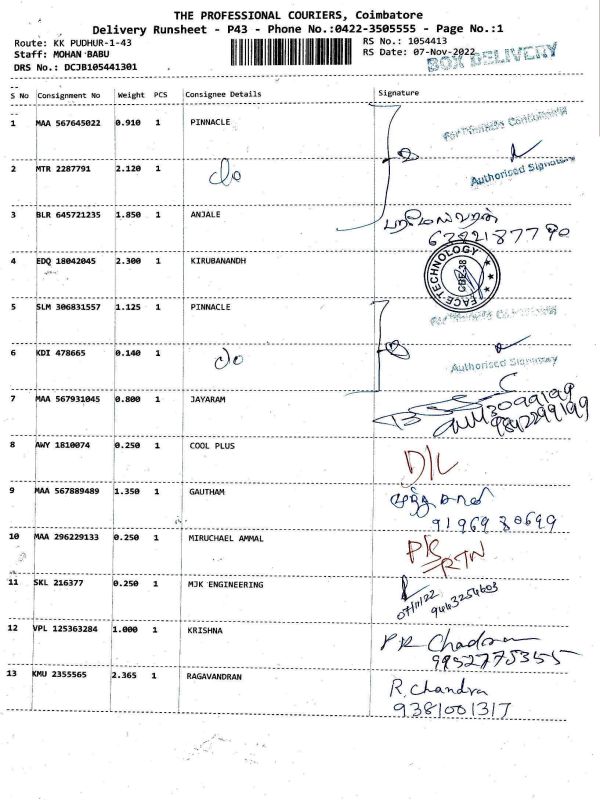 THE PROFESSIONAL COURIERS, Coimbatore
Delivery Runsheet - P43 - Phone No.:0422-3505555 - Page No.:1
Route: KK PUDHUR-1-43 RS No.: 1054413
Staff: MOHAN BABU RS Date: 07-Nov-2022
DRS No.: DCJB105441301 BOX DELIVERY
S No Consignment No Weight PCS Consignee Details Signature
1 MAA 567645022 0.910 1 PINNACLE
2 MTR 2287791 2.120 1 c/o Authorised Signatory
3 BLR 645721235 1.850 1 ANJALE
4 EDQ 18042045 2.300 1 KIRUBANANDH FACE TECHNOLOGY CBE-38
5 SLM 306831557 1.125 1 PINNACLE
6 KDI 478665 0.140 1 c/o Authorised Signatory
7 MAA 567931045 0.800 1 JAYARAM
8 AWY 1810074 0.250 1 COOL PLUS D/L
9 MAA 567889489 1.350 1 GAUTHAM
10 MAA 296229133 0.250 1 MIRUCHAEL AMMAL RTN
11 SKL 216377 0.250 1 MJK ENGINEERING 07/11/22 9443254603
12 VPL 125363284 1.000 1 KRISHNA
9952775355
13 KMU 2355565 2.365 1 RAGAVANDRAN R. Chandra
9381001317